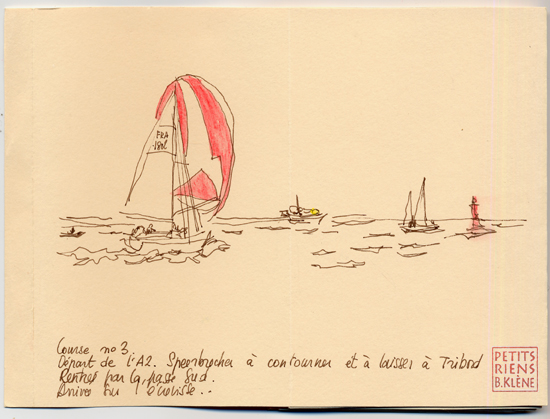 FRA
Course no 3
Départ de l'A2. Speerbrecher à contourner et à laisser à Tribord
Rentrer par la passe Sud.
Arrivée sur l'écluse..
PETITS
RIENS
B.KLÈNE